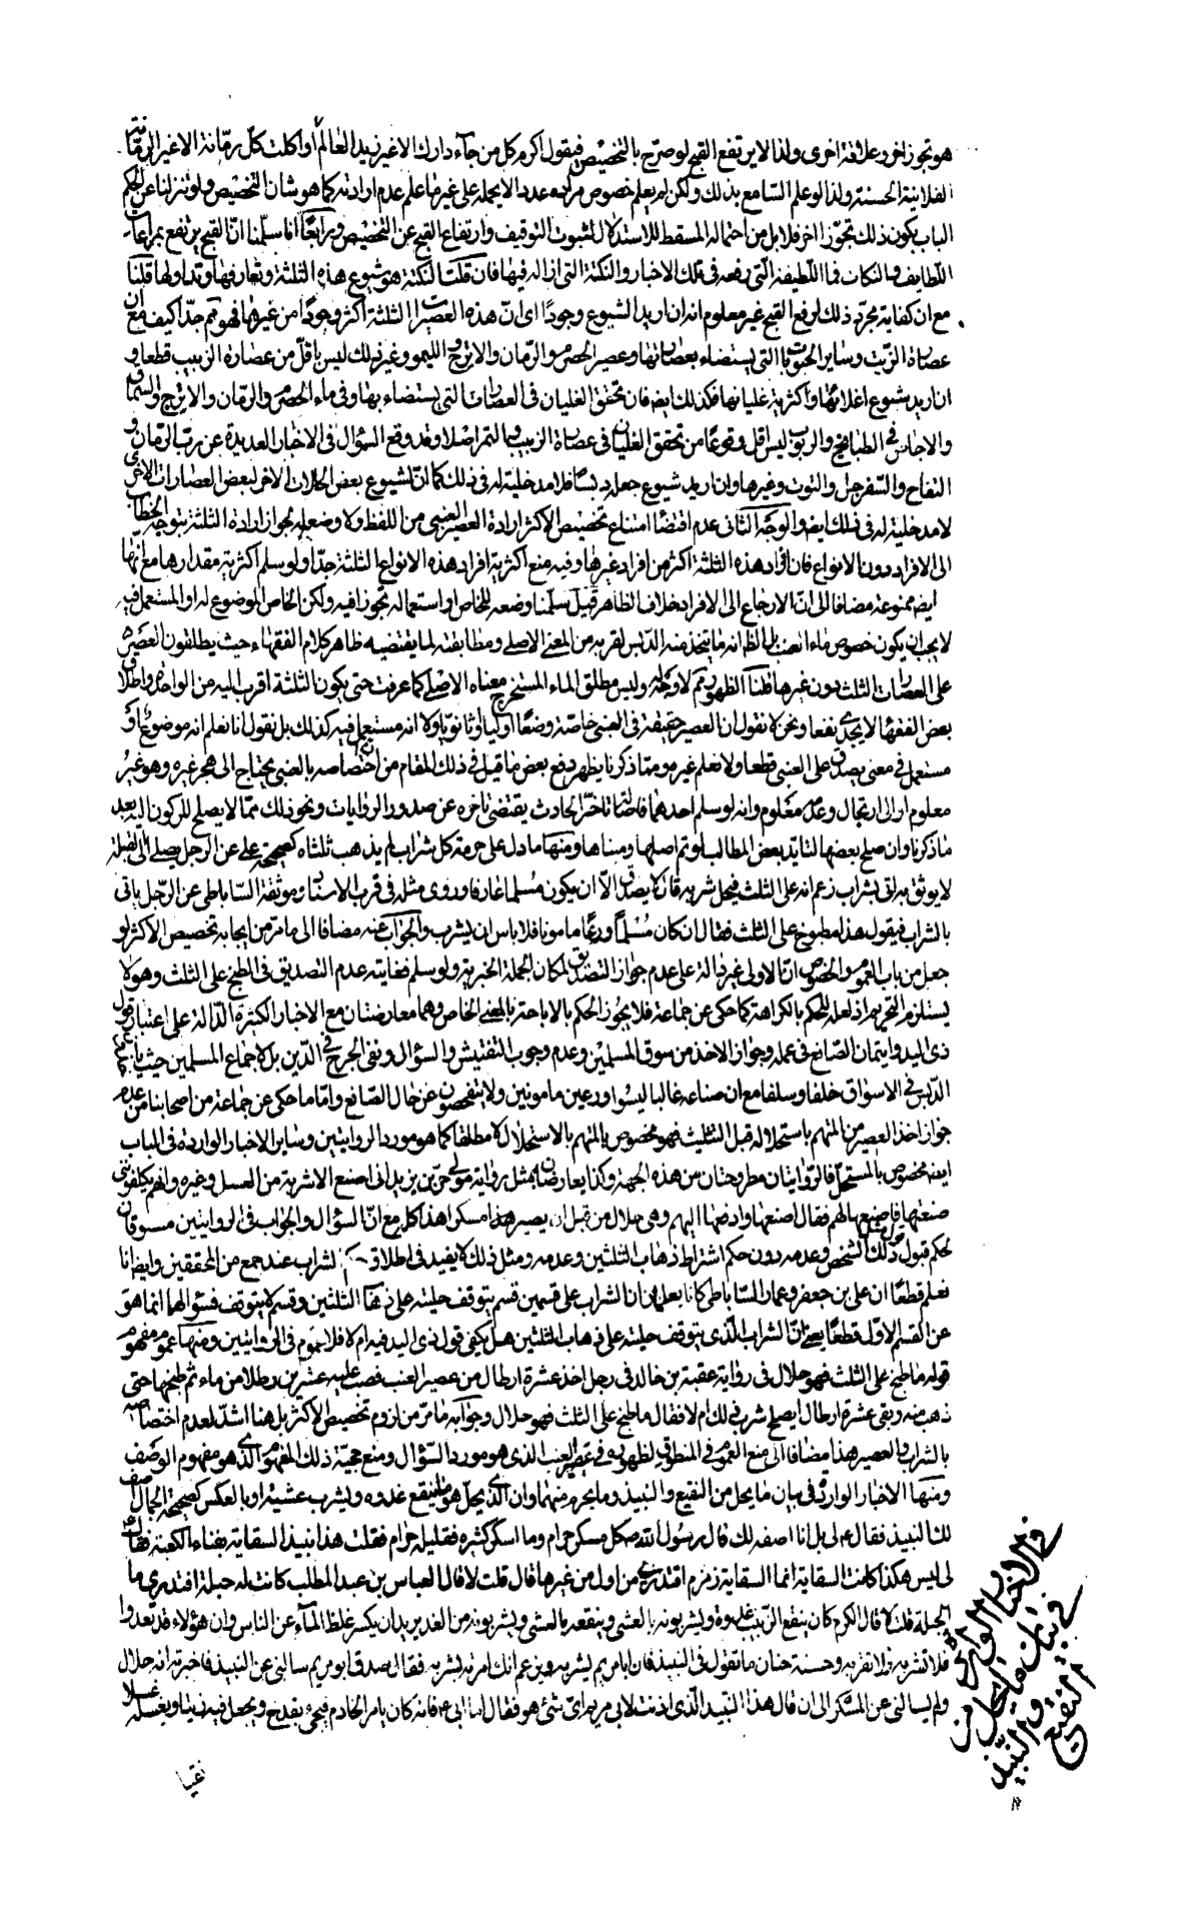 هو تجوز اخر وعلاقة اخرى ولذا لا يرتفع القبح لو صرح بالتخصيص فيقول اكرم كل من جاء دارك الا غير زيد العالم او اكلت كل رمانة الا غير الرمانة
الفلانية الحسنة ولذا لو علم السامع بذلك ولكن لم يعلم خصوص مراده عدد الا يحمله على غير ما علم عدم ارادته كما هو شان التخصيص ولو تنزلنا عن الحكم
الباب يكون ذلك تجوزا اخر فلا بد من احتماله المسقط للاستدلال لثبوت التوقيف وارتفاع القبح عن التخصيص ورابعا انا سلمنا ان القبح يرتفع بمراعات
اللطايف والنكات فما اللطيفة التي رفعه في تلك الاخبار والنكتة التي ازاله فيها فان قلت النكتة هو شيوع هذه الثلثة وتعارفها وتداولها قلنا
مع ان كفاية مجرد ذلك لرفع القبح غير معلوم انه ان اريد الشيوع وجودا اى ان هذه العصيرات الثلثة اكثر وجودا من غيرها فهو مم جدا كيف مع ان
عصارة الزيت وساير الحبوبات التي يستضاء بعصاراتها وعصير الحصرم والرمان والاترج والليمو وغير ذلك ليس باقل من عصارة الزبيب قطعا و
ان اريد شيوع اغلائها واكثرية غليانها فكذلك ايضا فان تحقق الغليان في العصارات التي يستضاء بها وفي ماء الحصرم والرمان والاترج والسماق
والاجاص في الطبايخ والربوب ليس اقل وقوعا من تحقق الغليان في عصارة الزبيب والتمر اصلا وقد وقع السؤال في الاخبار العديدة عن رب الرمان و
التفاح والسفرجل والتوت وغيرها وان اريد شيوع جعله دبسا فلا مدخلية له في ذلك كما ان لشيوع بعض الحالات الاخر لبعض العصارات الاخرى
لا مدخلية له في ذلك ايضا والوجه الثاني عدم اقتضاء امتناع تخصيص الاكثر ارادة العصير العنبي من اللفظ ولا وضعه له لجواز ارادة الثلثة بتوجه الخطاب
الى الافراد دون الانواع فان افراد هذه الثلثة اكثر من افراد غيرها وفيه منع اكثرية افراد هذه الانواع الثلثة جدا ولو سلم اكثرية مقدارها مع انها
ايضا ممنوعة مضافا الى ان الارجاع الى الافراد خلاف الظاهر قيل سلمنا وضعه للخاص او استعماله تجوزا فيه ولكن الخاص الموضوع له او المستعمل فيه
لا يجب ان يكون خصوص ماء العنب بل الظ انه ما يتخذ منه الدبس لقربه من المعنى الاصلي ومطابقته لما يقتضيه ظاهر كلام الفقهاء حيث يطلقون العصير
على العصارات الثلث دون غيرها قلنا الظهور مم لا وجه له وليس مطلق الماء المستخرج معناه الاصلي كما عرفت حتى يكون الثلثة اقرب اليه من الواحد واطلاق
بعض الفقهاء لا يجدى نفعا ونحن لا نقول ان العصير حقيقة في العنبي خاصة وضعا اوليا او ثانويا ولا انه مستعمل فيه كذلك بل نقول انا نعلم انه موضوع او
مستعمل في معنى يصدق على العنبي قطعا ولا نعلم غيره ومما ذكرنا يظهر دفع بعض ما قيل في ذلك المقام من ان اختصاصه بالعنبي يحتاج الى هجر غيره وهو غير
معلوم او الى ارتجال وعدمه معلوم وانه لو سلم احدهما فاصالة تاخر الحادث يقتضي تاخره عن صدور الروايات ونحو ذلك مما لا يصلح للركون اليه بعد
ما ذكرنا وان صلح بعضها لتائيد بعض المطالب لو تم اصلها ومبناها ومنها ما دل على حرمة كل شراب لم يذهب ثلثاه كصحيحة علي عن الرجل يصلي الى القبلة
لا يوثق به اتى بشراب زعم انه على الثلث فيحل شربه قال لا يصدق الا ان يكون مسلما عارفا وروى مثله في قرب الاسناد وموثقة الساباطي عن الرجل ياتي
بالشراب فيقول هذا مطبوخ على الثلث فقال ان كان مسلما ورعا مامونا فلا باس ان يشرب والجواب عنه مضافا الى ما مر من ايجابه تخصيص الاكثر لو
جعل من باب العموم والخصوص ان الاولى غير دالة على عدم جواز التصديق لمكان الجملة الخبرية ولو سلم فغايته عدم التصديق في الطبخ على الثلث وهو لا
يستلزم التحريم اذ لعله للحكم بالكراهة كما حكى عن جماعة فلا يجوز الحكم بالاباحة بالمعنى الخاص وهما معارضتان مع الاخبار الكثيرة الدالة على اعتبار قول
ذى اليد وايتمان الصانع في عمله وجواز الاخذ من سوق المسلمين وعدم وجوب التفتيش والسؤال ونفى الحرج في الدين بل لاجماع المسلمين حيث يباع
الدبس في الاسواق خلفا وسلفا مع ان صناعه غالبا ليسوا ورعين مامونين ولا يتفحصون عن حال الصانع واما ما حكى عن جماعة من اصحابنا من عدم
جواز اخذ العصير من المتهم باستحلاله قبل التثليث فهو مخصوص بالمتهم بالاستحلال لا مطلقا كما هو مورد الروايتين وساير الاخبار الواردة في الباب
ايضا مخصوص بالمستحل فالروايتان مطروحتان من هذه الجهة وكذا يعارضان بمثل رواية مولى حر بن يزيد اني اصنع الاشربة من العسل وغيره وانهم يكلفونني
صنعتها فاصنعها لهم فقال اصنعها وادفعها اليهم وهي حلال من قبل ان يصير هذا مسكرا هذا كله مع ان السؤال والجواب في الروايتين مسوقان
لحكم قبول قول مثل ذلك الشخص وعدمه دون حكم اشتراط ذهاب الثلثين وعدمه ومثل ذلك لا يفيد في اطلاق الشراب عند جمع من المحققين وايضا انا
نعلم قطعا ان علي بن جعفر وعمار الساباطي كانا يعلمان ان الشراب على قسمين قسم يتوقف حليته على ذهاب الثلثين وقسم لا يتوقف فسؤالهما انما هو
عن القسم الاول قطعا يعني ان الشراب الذى يتوقف حليته على ذهاب الثلثين هل يكفي قول ذى اليد فيه ام لا فلا عموم في الروايتين ومنها عموم مفهوم
قوله ما طبخ على الثلث فهو حلال في رواية عقبة بن خالد في رجل اخذ عشرة ارطال من عصير العنب فصب عليه عشرين رطلا من ماء ثم طبخها حتى
ذهب منه وبقى عشرة ارطال ايصلح شرب ذلك ام لا فقال ما طبخ على الثلث فهو حلال وجوابه ما مر من لزوم تخصيص الاكثر بل هنا اشد لعدم اختصاصه
بالشراب والعصير هذا مضافا الى منع العموم في المنطوق لظهوره في عصير العنب الذى هو مورد السؤال ومنع حجية ذلك المفهوم الذى هو مفهوم الوصف
ومنها الاخبار الواردة في بيان ما يحل من النقيع والنبيذ وما يحرم منهما وان الذى يحل هو ما ينقع غدوة ويشرب عشية او بالعكس كصحيحة الجمال اصف
لك النبيذ فقال ع لي بل انا اصفه لك قال رسول الله ص كل مسكر حرام وما اسكر كثيره فقليله حرام فقلت هذا نبيذ السقاية بفناء الكعبة فقال
لي ليس هكذا كانت السقاية انما السقاية زمزم افتدرى من اول من غيرها قال قلت لا قال العباس بن عبد المطلب كانت له حبلة افتدرى ما
الحبلة قلت لا قال الكرم كان ينقع الزبيب غدوة ويشربونه بالعشى وينقعه بالعشى ويشربونه من الغد يريد ان يكسر غلظ الماء عن الناس وان هؤلاء قد تعدوا
فلا تشربه ولا تقربه وحسنة حنان ما تقول في النبيذ فان ابا مريم يشربه ويزعم انك امرته بشربه فقال صدق ابو مريم سالني عن النبيذ فاخبرته انه حلال
ولم يسالني عن المسكر الى ان قال هذا النبيذ الذى اذنت لابي مريم اى شئ هو فقال اما ابي ع فانه كان يامر الخادم فيجئ بقدح ويجعل فيه زبيبا ويغسله غسلا
نقيا
في الاخبار الواردة
في بيان ما يحل من
النقيع والنبيذ